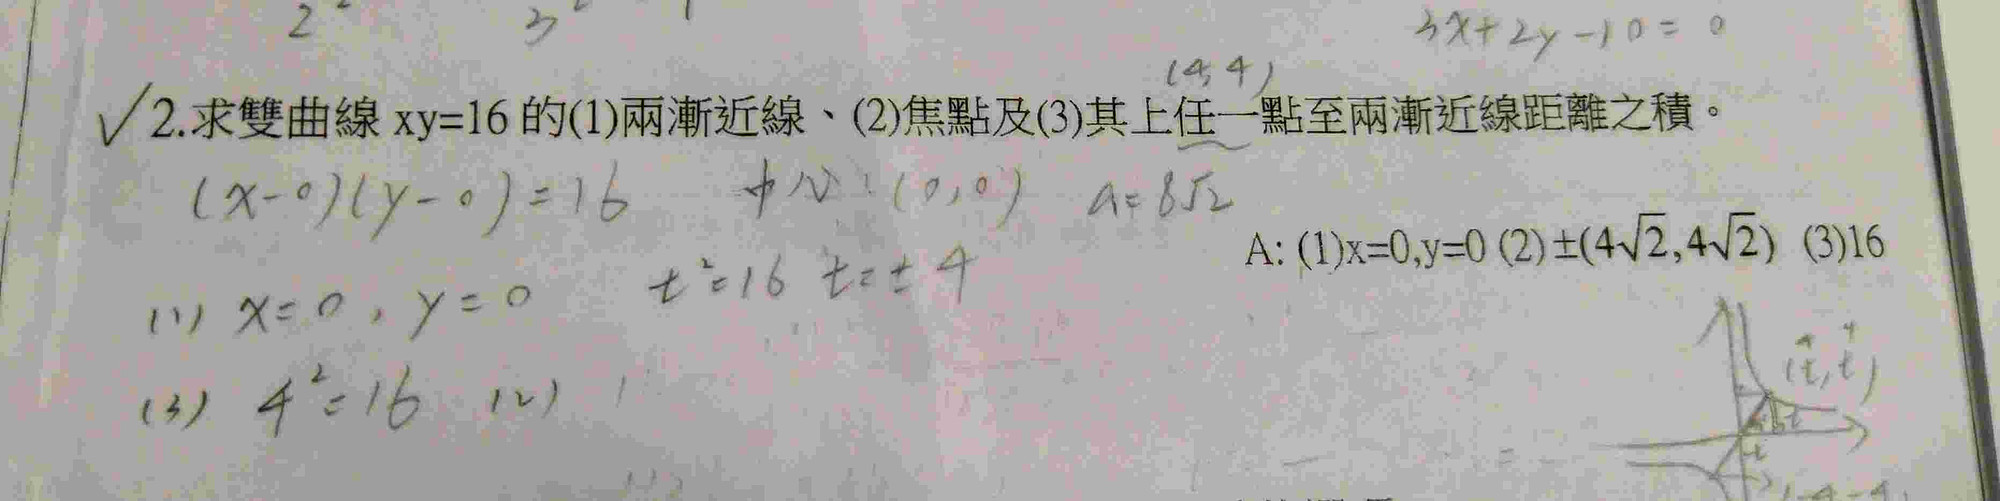 2² 3² 1
3x+2y-10=0
(4,4)
✓2.求雙曲線 xy=16 的(1)兩漸近線、(2)焦點及(3)其上任一點至兩漸近線距離之積。
(x-0)(y-0)=16 中心:(0,0) a=8√2
A: (1)x=0,y=0 (2)±(4√2,4√2) (3)16
t²=16 t=±4
(1) x=0, y=0
(3) 4²=16 (2)
(t,t)